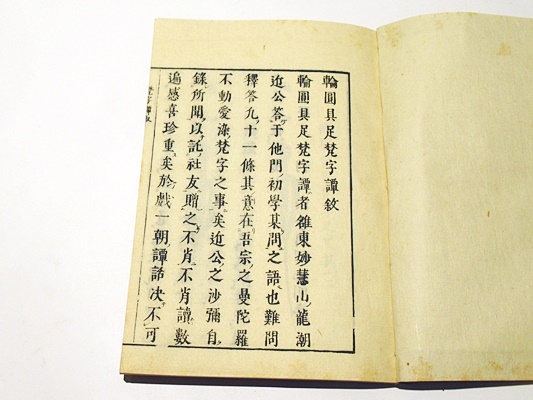 輪圓具足梵字譚敘
輪圓具足梵字譚者雒東妙慧山龍潮
近公答于他門初學某問之語也難問
釋答九十一條其意在吾宗之曼陀羅
不動愛染梵字之事矣近公之沙彌自
錄所聞以託社友贈之不肖不肖讀數
遍感喜珍重矣於戲一朝譚話决不可